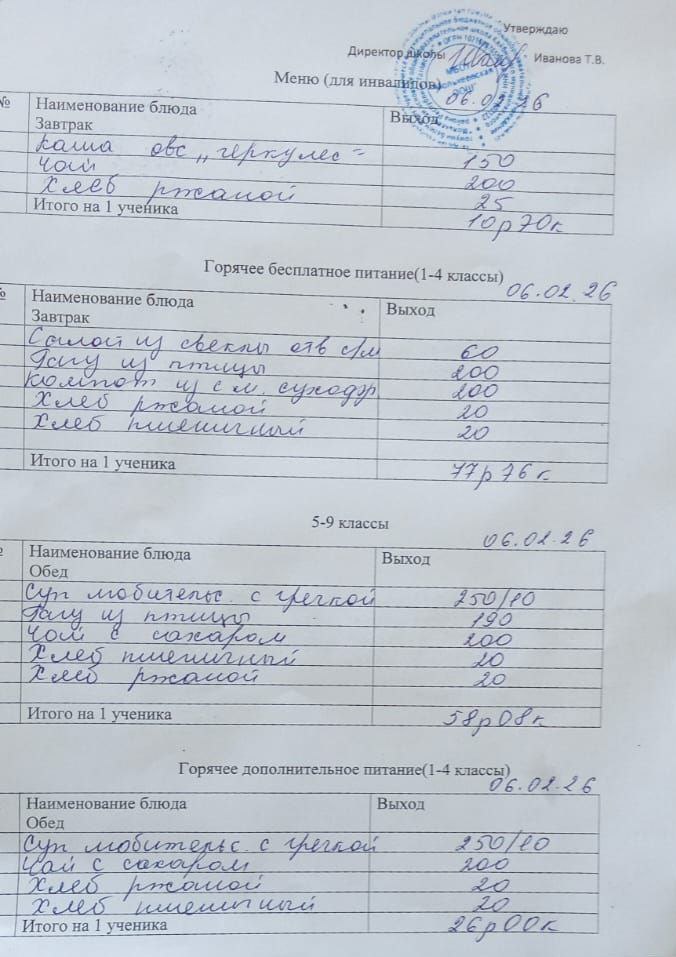 Утверждаю
Директор школы Иванова Т.В.
Меню (для инвалидов) 06.02.26
№ Наименование блюда Выход
Завтрак
каша овс „геркулес" 150
чай 200
Хлеб ржаной 25
Итого на 1 ученика 10р70к
Горячее бесплатное питание(1-4 классы) 06.02.26
№ Наименование блюда Выход
Завтрак
Салат из свеклы отв с/м 60
Рагу из птицы 200
компот из см. сухофр 200
Хлеб ржаной 20
Хлеб пшеничный 20
Итого на 1 ученика 77р76к
5-9 классы 06.02.26
Наименование блюда Выход
Обед
Суп любительс. с гречкой 250/10
Рагу из птицы 190
Чай с сахаром 200
Хлеб пшеничный 20
Хлеб ржаной 20
Итого на 1 ученика 58р08к
Горячее дополнительное питание(1-4 классы) 06.02.26
Наименование блюда Выход
Обед
Суп любительс. с гречкой 250/10
Чай с сахаром 200
Хлеб ржаной 20
Хлеб пшеничный 20
Итого на 1 ученика 26р00к